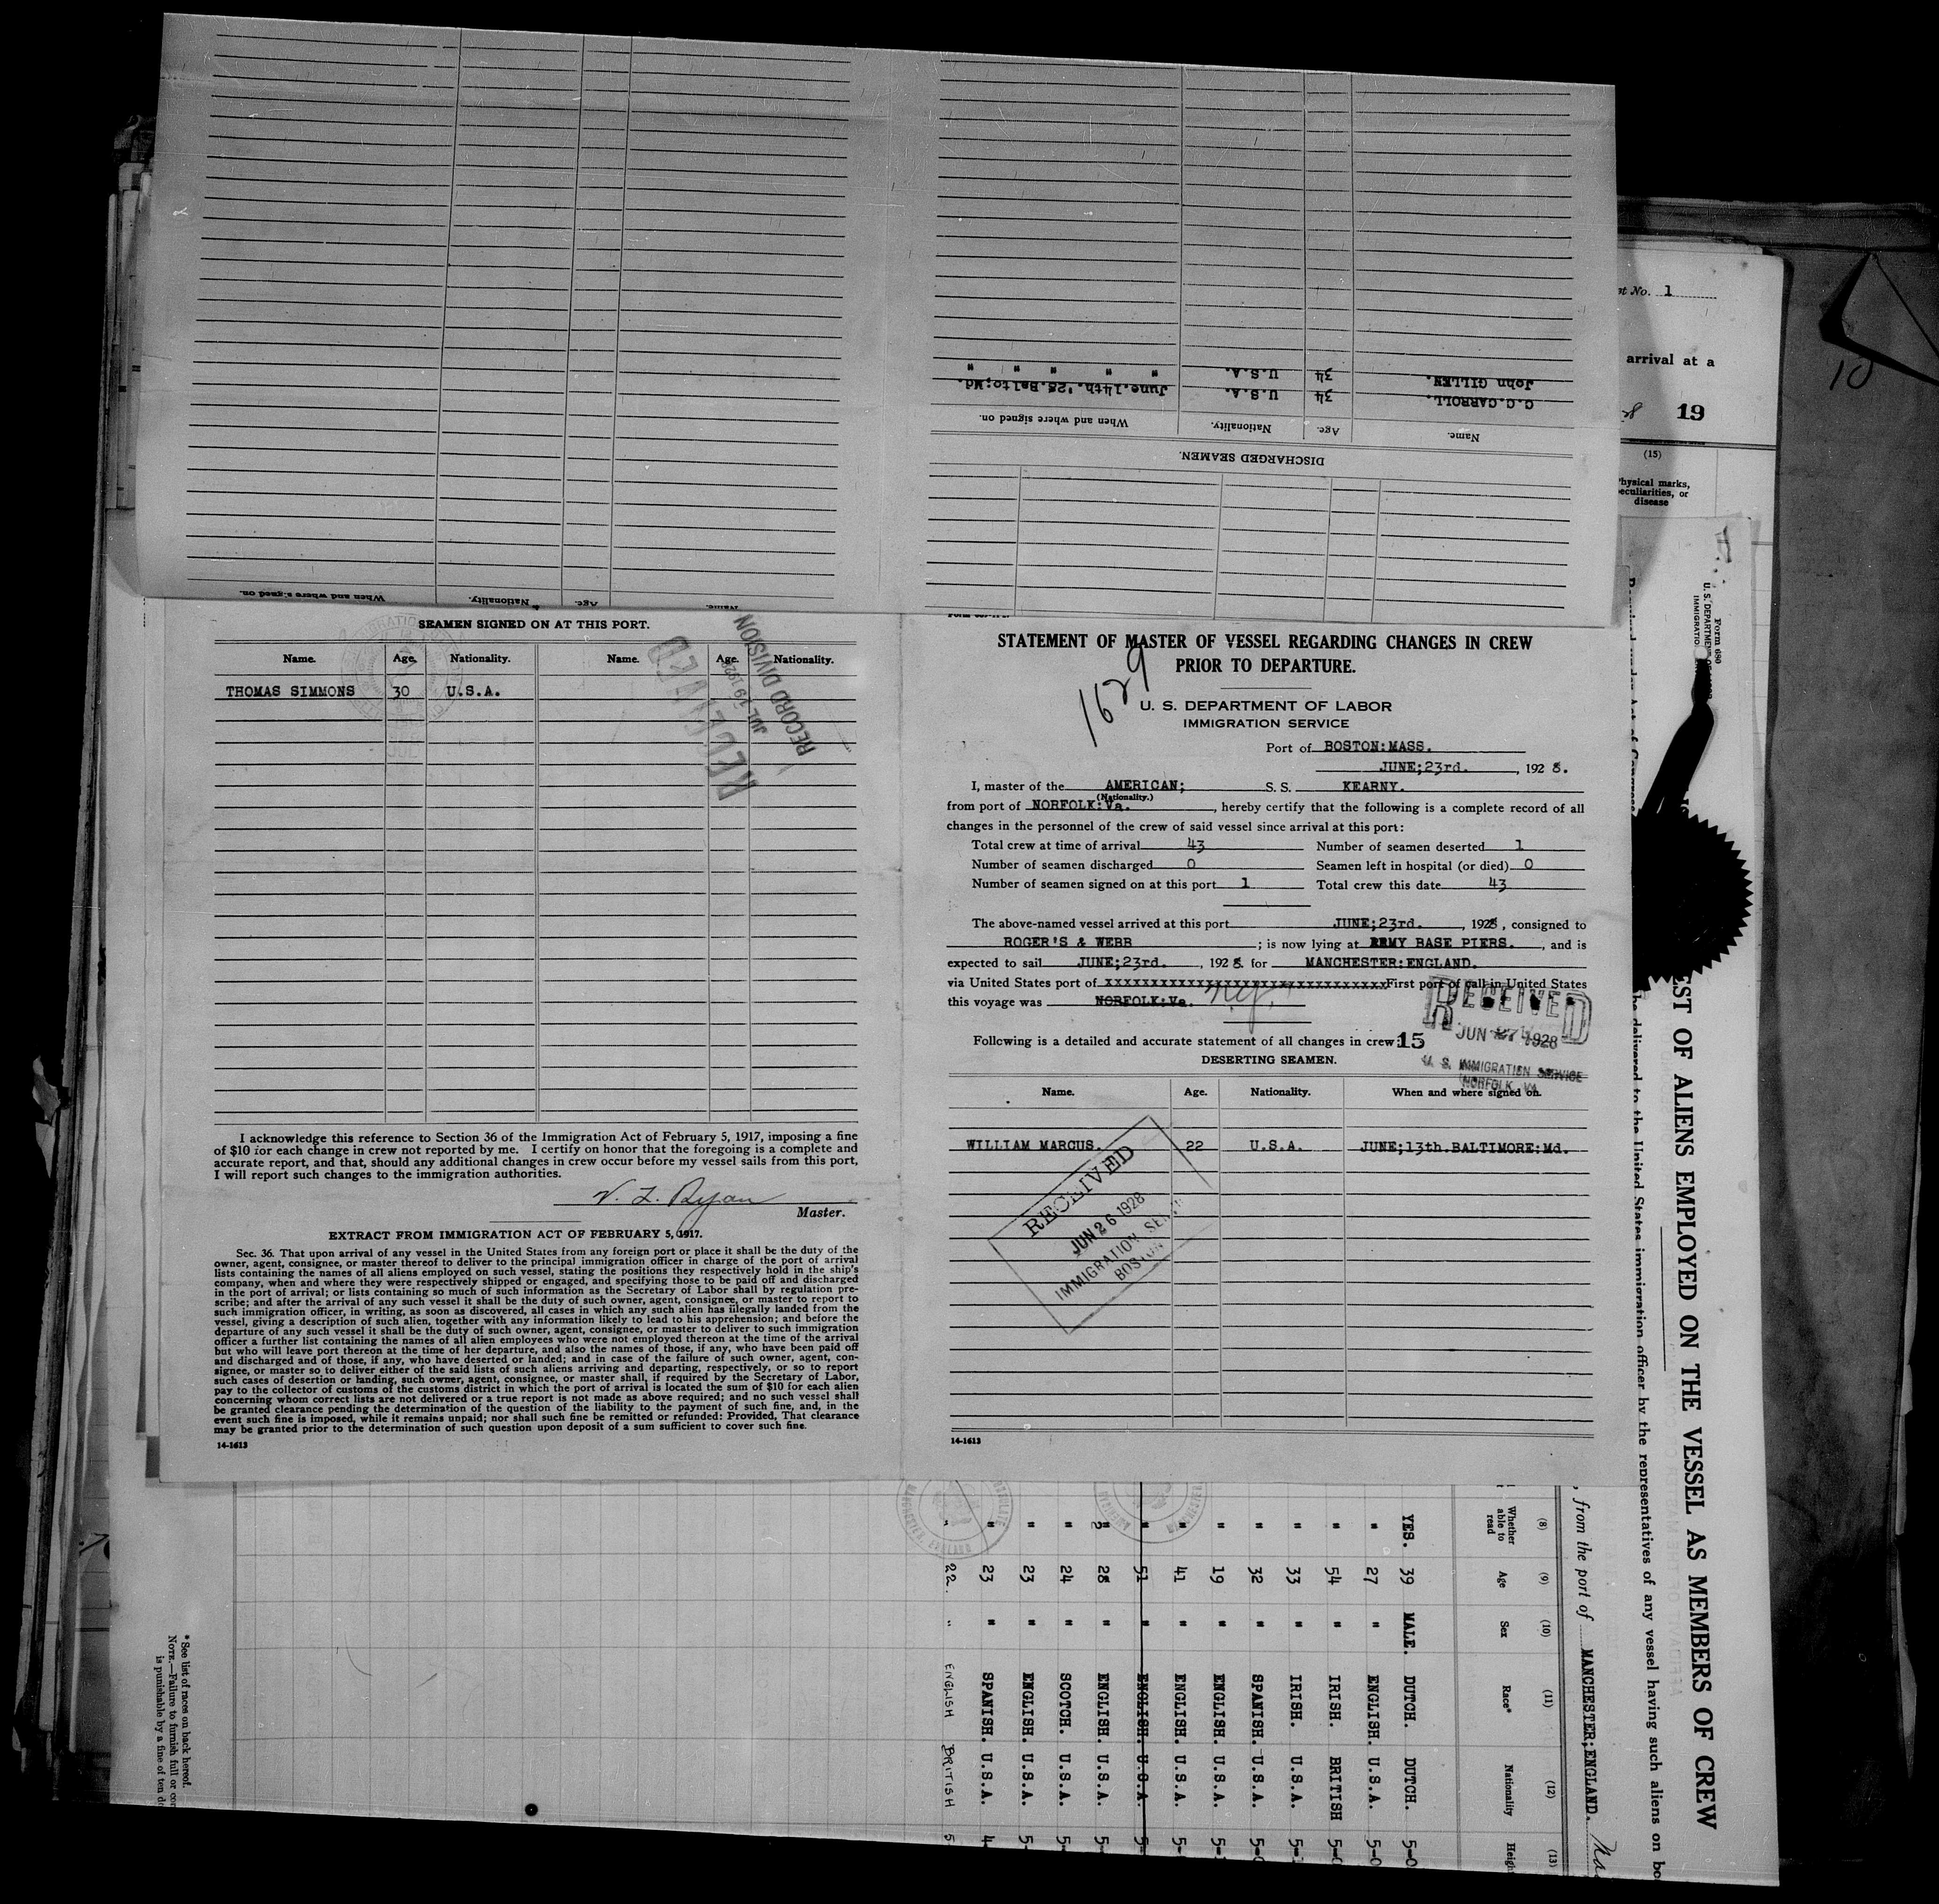 John GILLEN. 34 U.S.A. " " " "
C.C.CARROLL. 34 U.S.A. June.14th.'28.Balto;Md.
Name. Age. Nationality. When and where signed on.
DISCHARGED SEAMEN.
Name. Age. Nationality. When and where signed on.
SEAMEN SIGNED ON AT THIS PORT.
Name. Age. Nationality. Name. Age. Nationality.
THOMAS SIMMONS 30 U.S.A.
RECEIVED
JUL 19 1928
RECORD DIVISION
I acknowledge this reference to Section 36 of the Immigration Act of February 5, 1917, imposing a fine
of $10 for each change in crew not reported by me. I certify on honor that the foregoing is a complete and
accurate report, and that, should any additional changes in crew occur before my vessel sails from this port,
I will report such changes to the immigration authorities.
V. L. Ryan
Master.
EXTRACT FROM IMMIGRATION ACT OF FEBRUARY 5, 1917.
Sec. 36. That upon arrival of any vessel in the United States from any foreign port or place it shall be the duty of the
owner, agent, consignee, or master thereof to deliver to the principal immigration officer in charge of the port of arrival
lists containing the names of all aliens employed on such vessel, stating the positions they respectively hold in the ship's
company, when and where they were respectively shipped or engaged, and specifying those to be paid off and discharged
in the port of arrival; or lists containing so much of such information as the Secretary of Labor shall by regulation pre-
scribe; and after the arrival of any such vessel it shall be the duty of such owner, agent, consignee, or master to report to
such immigration officer, in writing, as soon as discovered, all cases in which any such alien has illegally landed from the
vessel, giving a description of such alien, together with any information likely to lead to his apprehension; and before the
departure of any such vessel it shall be the duty of such owner, agent, consignee, or master to deliver to such immigration
officer a further list containing the names of all alien employees who were not employed thereon at the time of the arrival
but who will leave port thereon at the time of her departure, and also the names of those, if any, who have been paid off
and discharged and of those, if any, who have deserted or landed; and in case of the failure of such owner, agent, con-
signee, or master so to deliver either of the said lists of such aliens arriving and departing, respectively, or so to report
such cases of desertion or landing, such owner, agent, consignee, or master shall, if required by the Secretary of Labor,
pay to the collector of customs of the customs district in which the port of arrival is located the sum of $10 for each alien
concerning whom correct lists are not delivered or a true report is not made as above required; and no such vessel shall
be granted clearance pending the determination of the question of the liability to the payment of such fine, and, in the
event such fine is imposed, while it remains unpaid; nor shall such fine be remitted or refunded: Provided, That clearance
may be granted prior to the determination of such question upon deposit of a sum sufficient to cover such fine.
14-1613
STATEMENT OF MASTER OF VESSEL REGARDING CHANGES IN CREW
PRIOR TO DEPARTURE.
1629
U. S. DEPARTMENT OF LABOR
IMMIGRATION SERVICE
Port of BOSTON:MASS.
JUNE;23rd. , 1928.
I, master of the AMERICAN; S. S. KEARNY.
(Nationality.)
from port of NORFOLK:Va. , hereby certify that the following is a complete record of all
changes in the personnel of the crew of said vessel since arrival at this port:
Total crew at time of arrival 43 Number of seamen deserted 1
Number of seamen discharged 0 Seamen left in hospital (or died) 0
Number of seamen signed on at this port 1 Total crew this date 43
The above-named vessel arrived at this port JUNE;23rd. , 1928, consigned to
ROGER'S & WEBB ; is now lying at ARMY BASE PIERS. , and is
expected to sail JUNE;23rd. , 1928. for MANCHESTER:ENGLAND.
via United States port of xxxxxxxxxxxxxxxxxxxxxxxxxxxxxxxxxx First port of call in United States
this voyage was NORFOLK:Va.
RECEIVED
JUN 27 1928
U. S. IMMIGRATION SERVICE
NORFOLK, VA.
Following is a detailed and accurate statement of all changes in crew: 15
DESERTING SEAMEN.
Name. Age. Nationality. When and where signed on.
WILLIAM MARCUS. 22 U.S.A. JUNE;13th.BALTIMORE:Md.
RECEIVED
JUN 26 1928
IMMIGRATION SERVICE
BOSTON
14-1613
No. 1
arrival at a
19
(15)
Physical marks,
peculiarities, or
disease
10
Form 680
U. S. DEPARTMENT
IMMIGRATIO
ST OF ALIENS EMPLOYED ON THE VESSEL AS MEMBERS OF CREW
be delivered to the United States immigration officer by the representatives of any vessel having such aliens on bo
, from the port of MANCHESTER;ENGLAND.
(8) (9) (10) (11) (12) (13)
Whether able to read Age Sex Race* Nationality Heigh
YES. 39 MALE. DUTCH. DUTCH. 5-0
" 27 " ENGLISH. U.S.A. 5-0
" 54 " IRISH. BRITISH 5-0
" 33 " IRISH. U.S.A. 5-
" 32 " SPANISH. U.S.A. 5-0
" 19 " ENGLISH. U.S.A. 5-
" 41 " ENGLISH. U.S.A. 5-
" 51 " ENGLISH. U.S.A. 5-
" 28 " ENGLISH. U.S.A. 5-
" 24 " SCOTCH. U.S.A. 5-
" 23 " ENGLISH. U.S.A. 5-
" 23 " SPANISH. U.S.A. 4-
" 22. " ENGLISH BRITISH 5
* See list of races on back hereof.
NOTE.—Failure to furnish full or cor
is punishable by a fine of ten do